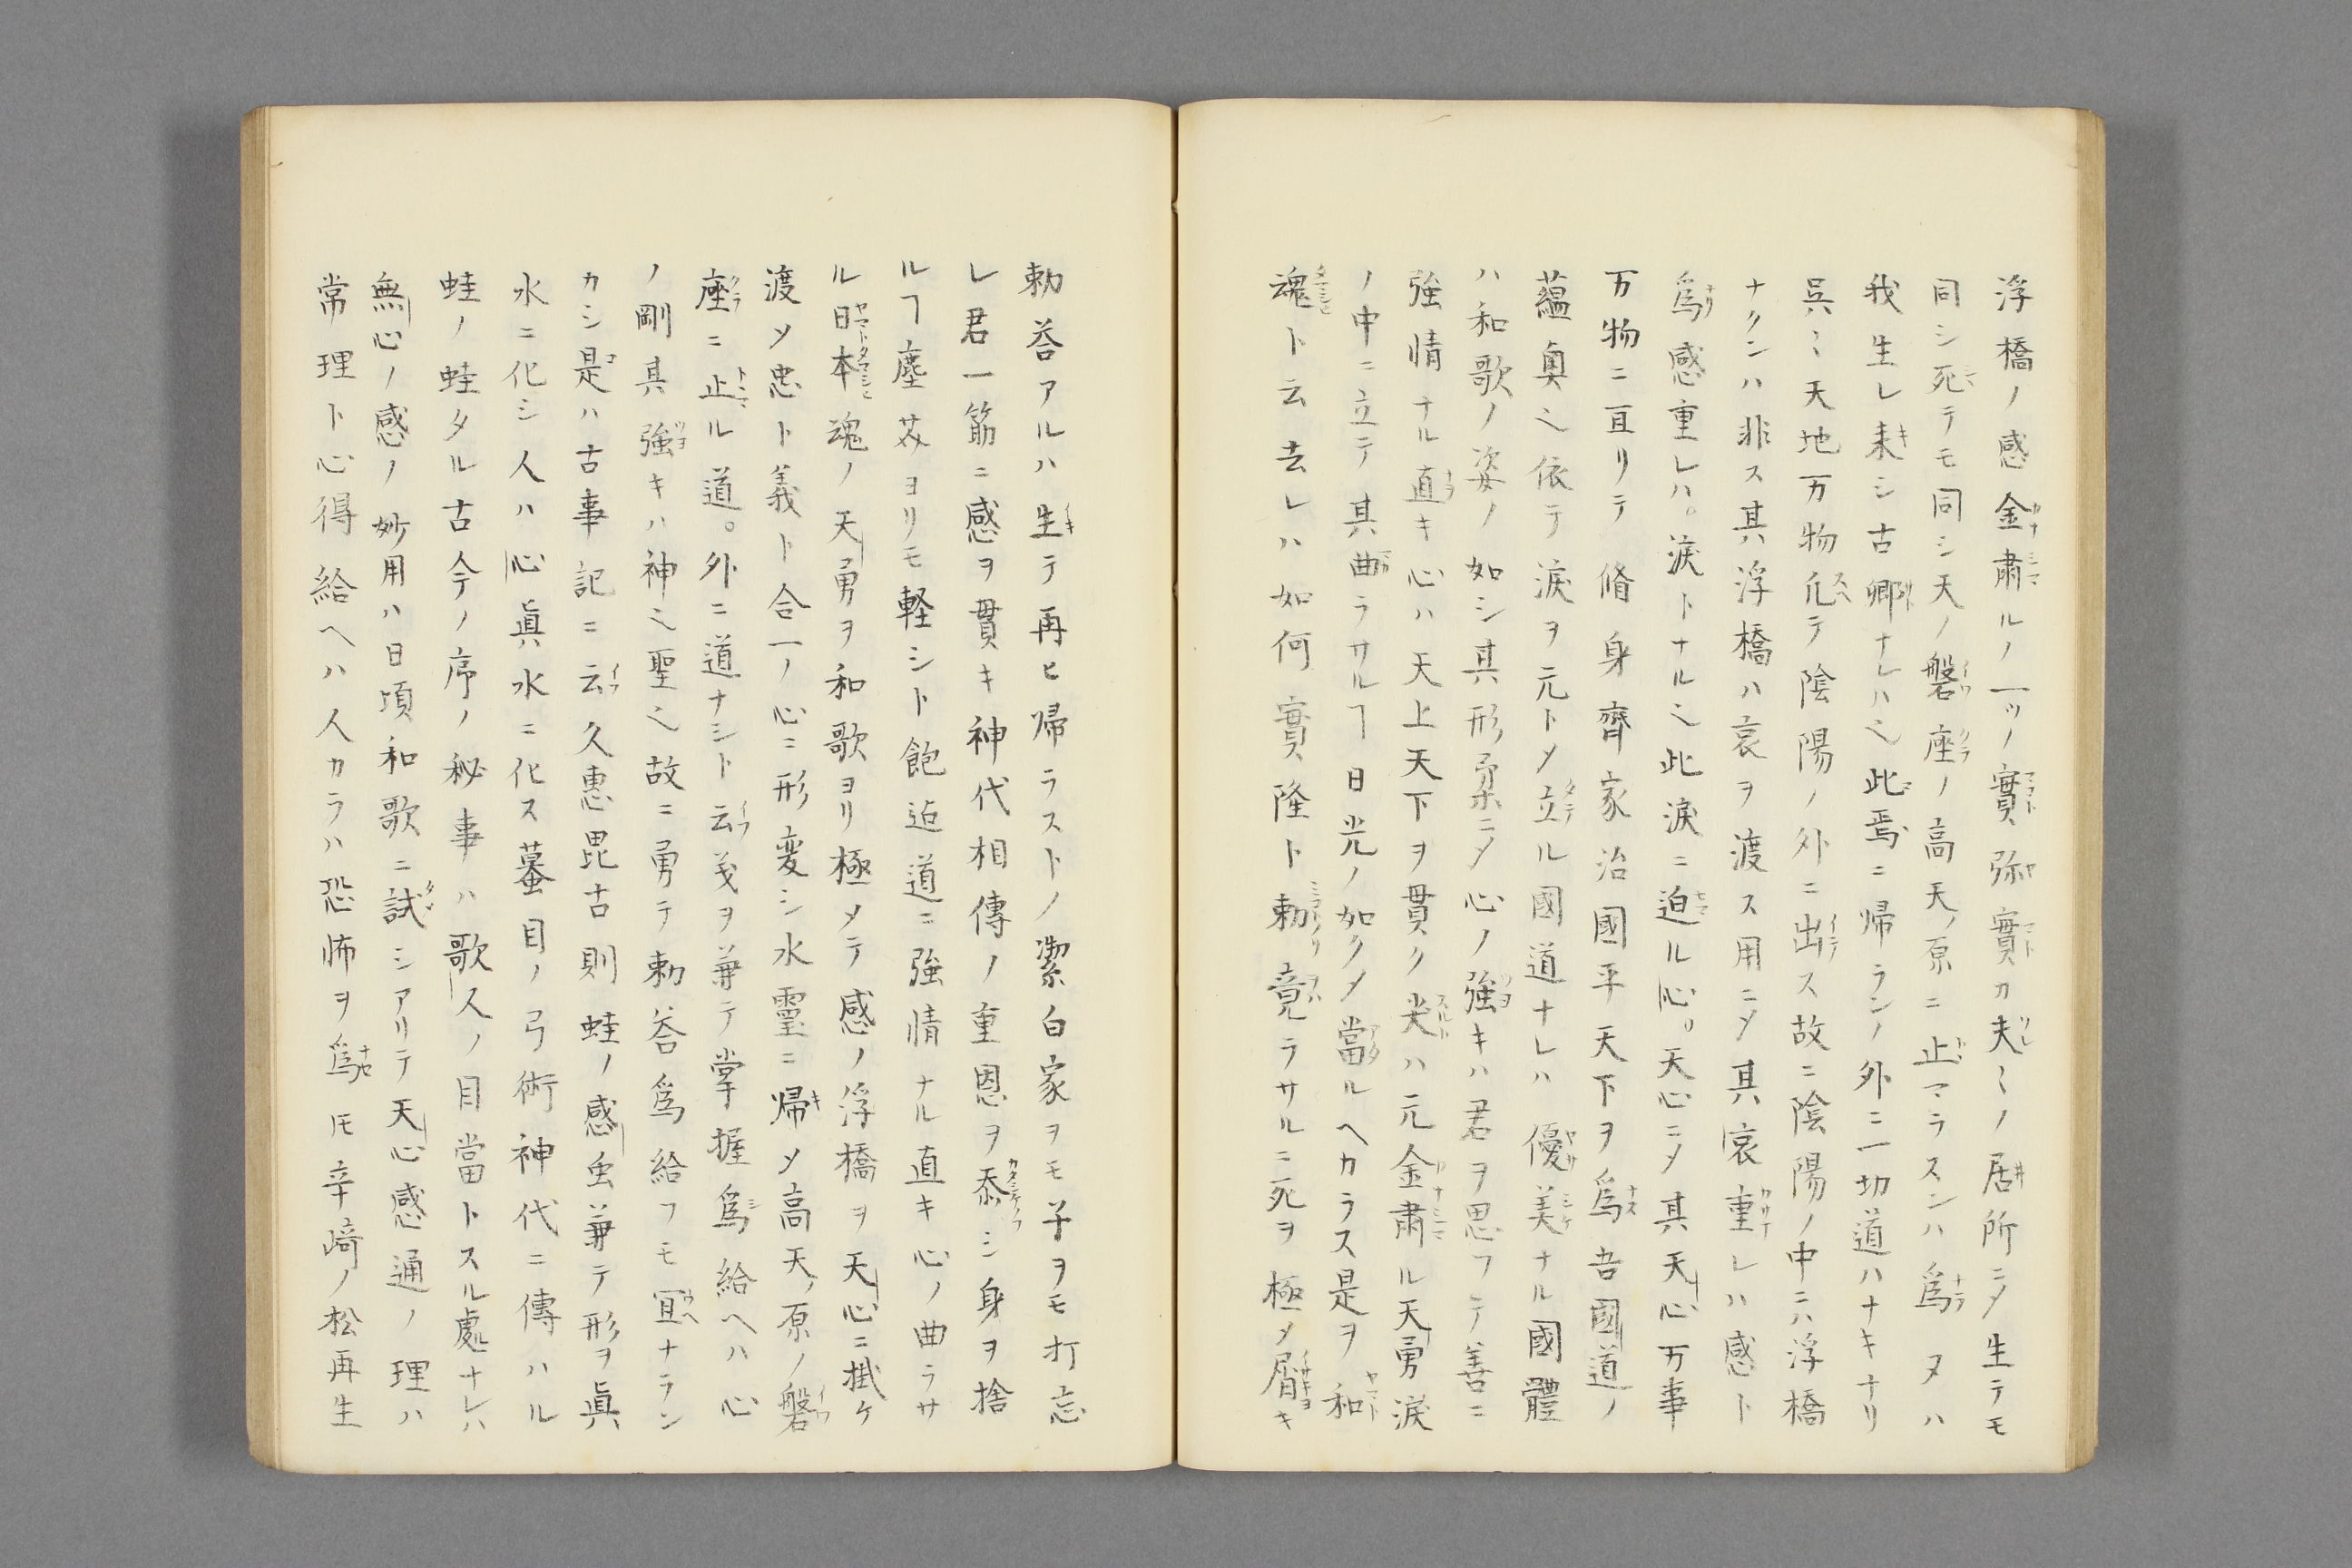 浮橋ノ感金肅ルノ一ツノ實弥實カ夫〻ノ居所ニ〆生テモ
同シ死テモ同シ天ノ磐座ノ高天ノ原ニ止マラスンハ爲ヌハ
我生レ来シ古郷ナレハ也此焉ニ帰ランノ外ニ一切道ハナキナリ
呉〻天地万物凢テ陰陽ノ外ニ出ス故ニ陰陽ノ中ニハ浮橋
ナクンハ非ス其浮橋ハ哀ヲ渡ス用ニ〆其哀重レハ感ト
爲感重レハ。涙トナル也此涙ニ迫ル心。天心ニ〆其天心万事
万物ニ亘リテ脩身齊家治國平天下ヲ爲吾國道ノ
蘊奥也依テ涙ヲ元ト〆立ル國道ナレハ優美ナル國體
ハ和歌ノ姿ノ如シ其形柔ニ〆心ノ強キハ君ヲ思フテ善ニ
強情ナル直キ心ハ天上天下ヲ貫ク尖ハ元金肅ル天勇涙
ノ中ニ立テ其曲ラサルヿ日光ノ如ク〆當ルヘカラス是ヲ和
魂ト云去レハ如何實隆ト勅竟ラサルニ死ヲ極〆屑キ
勅答アルハ生テ再ヒ帰ラストノ潔白家ヲモ子ヲモ打忘
レ君一筋ニ感ヲ貫キ神代相傳ノ重恩ヲ忝シ身ヲ捨
ルヿ塵芥ヨリモ軽シト飽迠道ニ強情ナル直キ心ノ曲ラサ
ル日本魂ノ天勇ヲ和歌ヨリ極メテ感ノ浮橋ヲ天心ニ掛ケ
渡〆忠ト義ト合一ノ心ニ形変シ水靈ニ帰〆高天ノ原ノ磐
座ニ止ル道。外ニ道ナシト云義ヲ兼テ掌握爲給ヘハ心
ノ剛其強キハ神也聖也故ニ勇テ勅答爲給フモ冝ナラン
カシ是ハ古事記ニ云久惠毘古則蛙ノ感虫兼テ形ヲ眞
水ニ化シ人ハ心眞水ニ化ス蟇目ノ弓術神代ニ傳ハル
蛙ノ蛙タル古今ノ序ノ秘事ハ歌人ノ目當トスル處ナレハ
無心ノ感ノ妙用ハ日頃和歌ニ試シアリテ天心感通ノ理ハ
常理ト心得給ヘハ人カラハ恐怖ヲ爲ㇳモ辛﨑ノ松再生